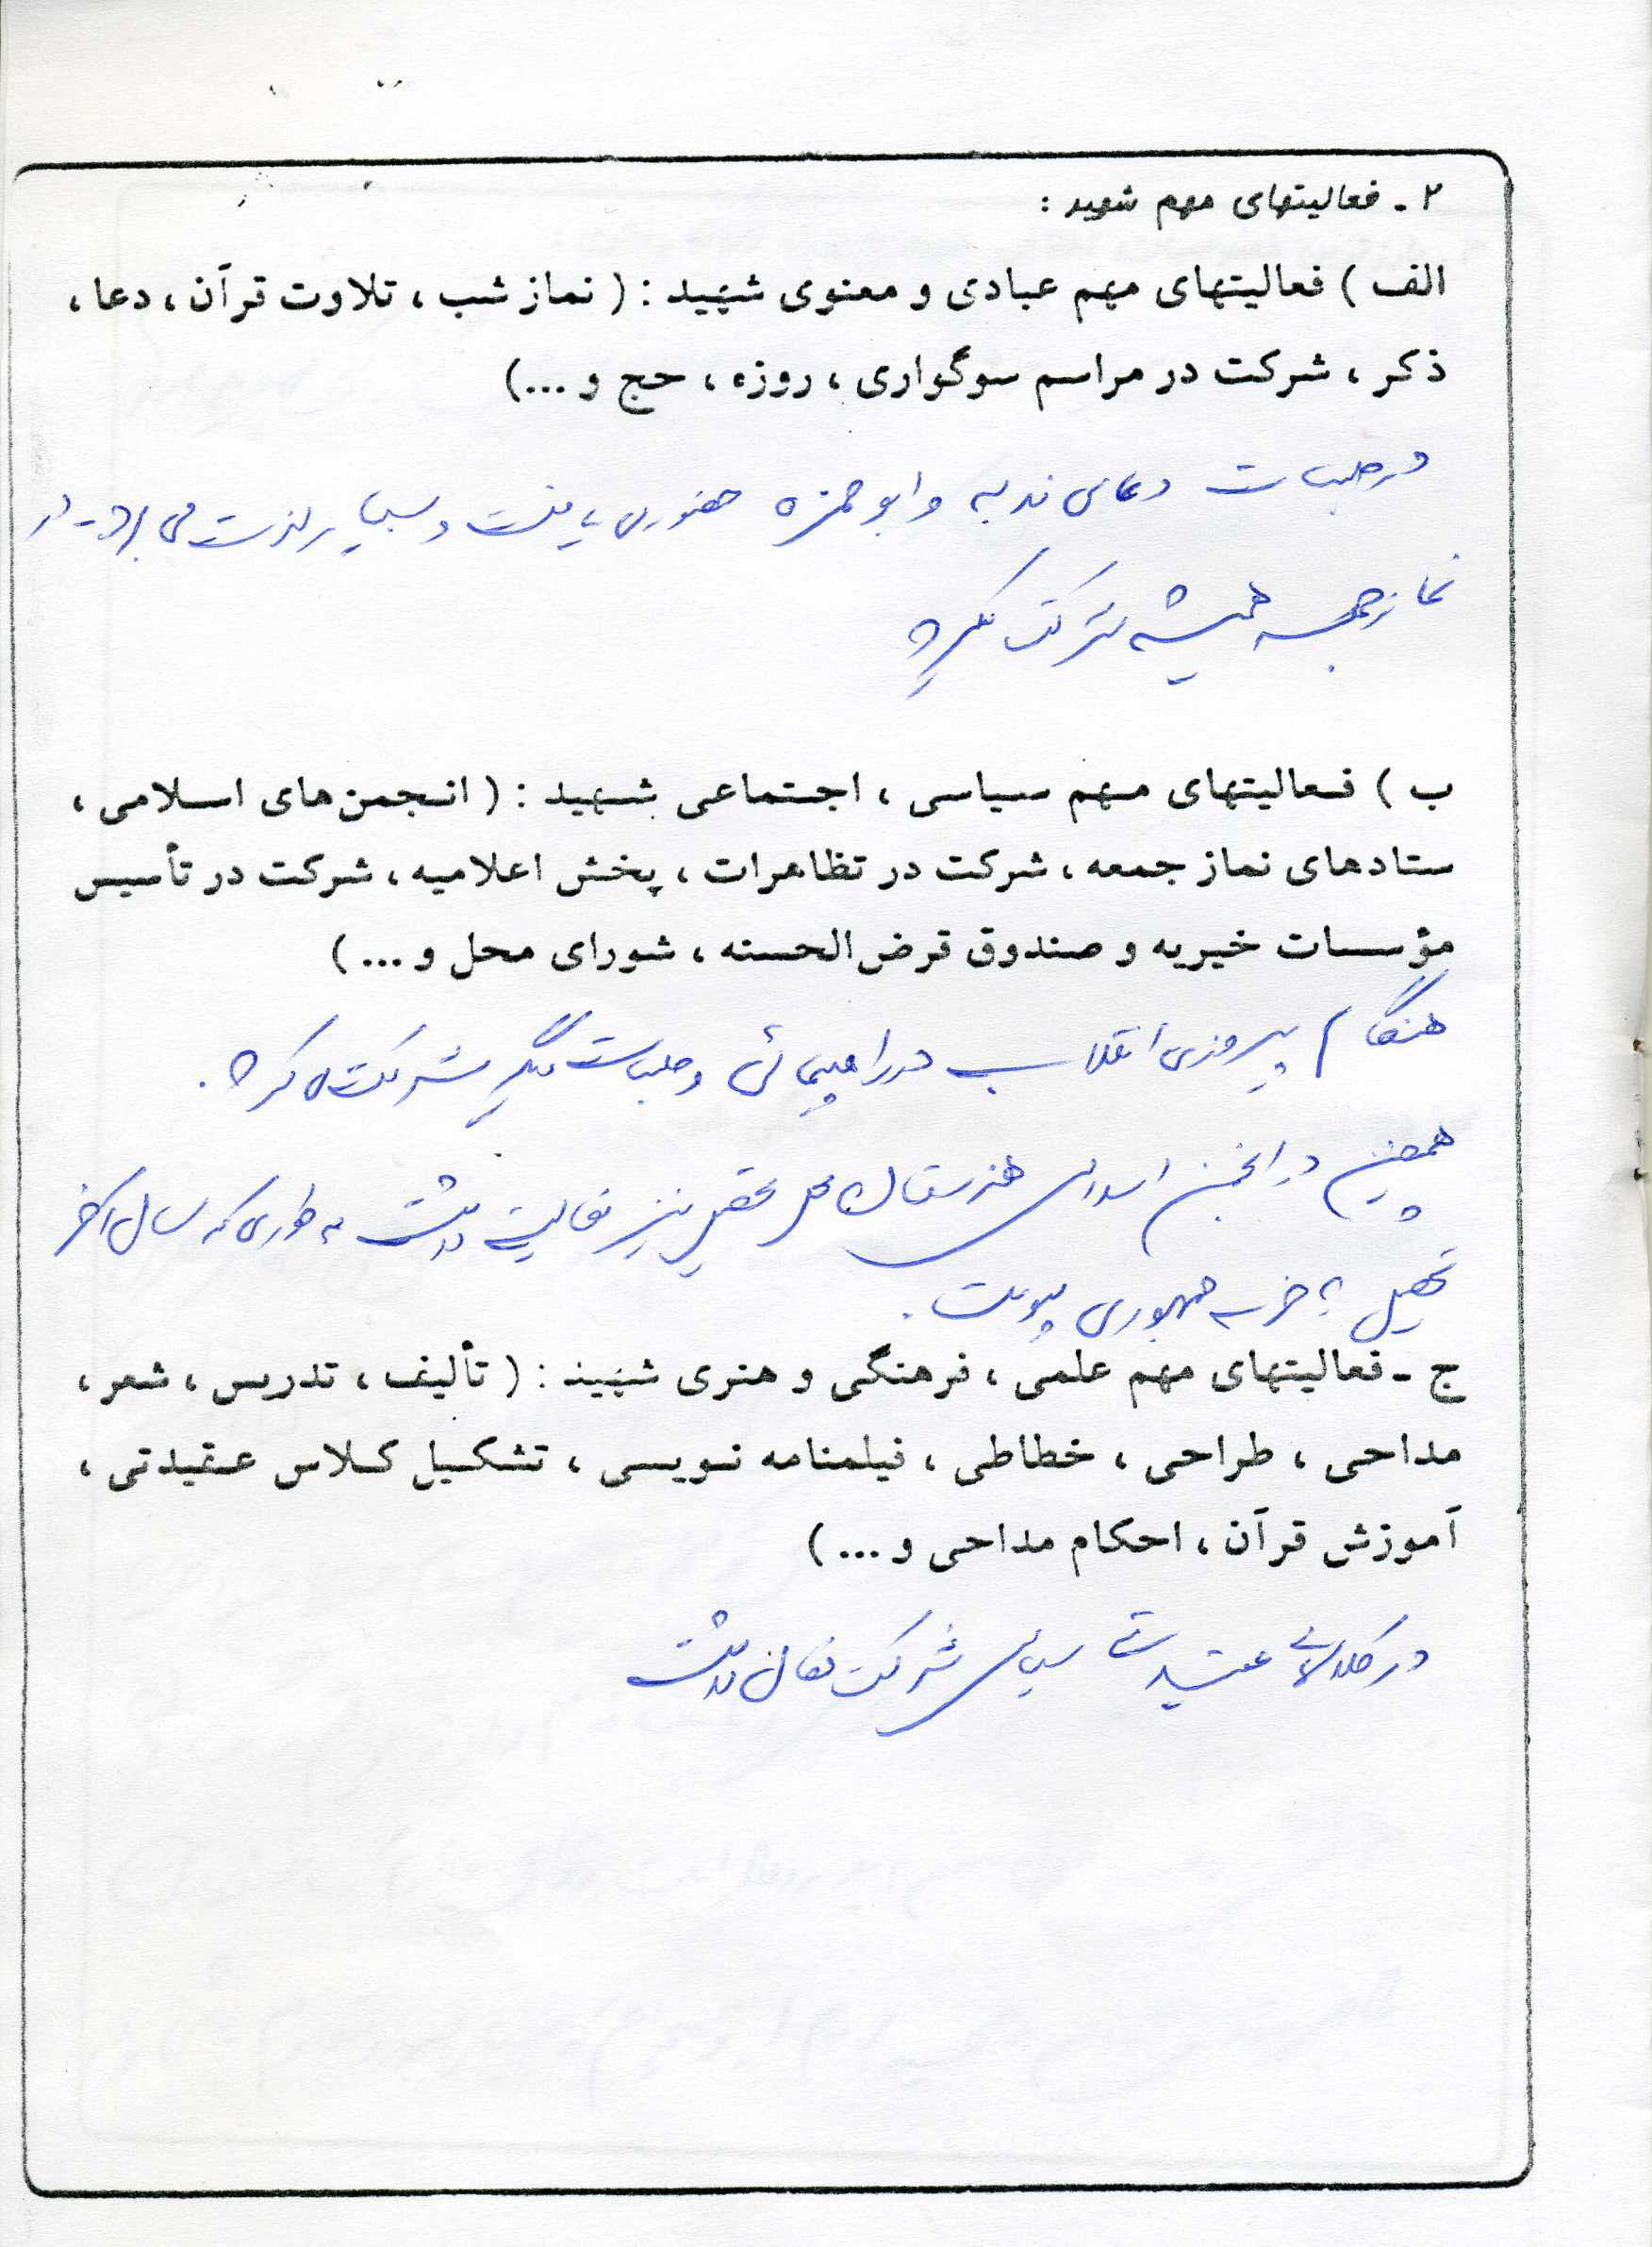 ۲ ـ فعالیتهای مهم شهید :
الف ) فعالیتهای مهم عبادی و معنوی شهید : ( نماز شب ، تلاوت قرآن ، دعا ،
ذکر ، شرکت در مراسم سوگواری ، روزه ، حج و ...)
در جلسات دعای ندبه و ابوحمزه حضور می یافت و بسیار لذت می برد - در
نماز جمعه همیشه شرکت میکرد
ب ) فعالیتهای مهم سیاسی ، اجتماعی شهید : ( انجمن‌های اسلامی ،
ستادهای نماز جمعه ، شرکت در تظاهرات ، پخش اعلامیه ، شرکت در تأسیس
مؤسسات خیریه و صندوق قرض‌الحسنه ، شورای محل و ... )
هنگام پیروزی انقلاب در راهپیمائی و جلسات دیگر شرکت می کرد .
همچنین در انجمن اسلامی هنرستان محل تحصیل نیز فعالیت داشت به طوری که سال آخر
تحصیل به حزب جمهوری پیوست .
ج ـ فعالیتهای مهم علمی ، فرهنگی و هنری شهید : ( تألیف ، تدریس ، شعر ،
مداحی ، طراحی ، خطاطی ، فیلمنامه نویسی ، تشکیل کلاس عقیدتی ،
آموزش قرآن ، احکام مداحی و ... )
در کلاسهای عقیدتی سیاسی شرکت فعال داشت